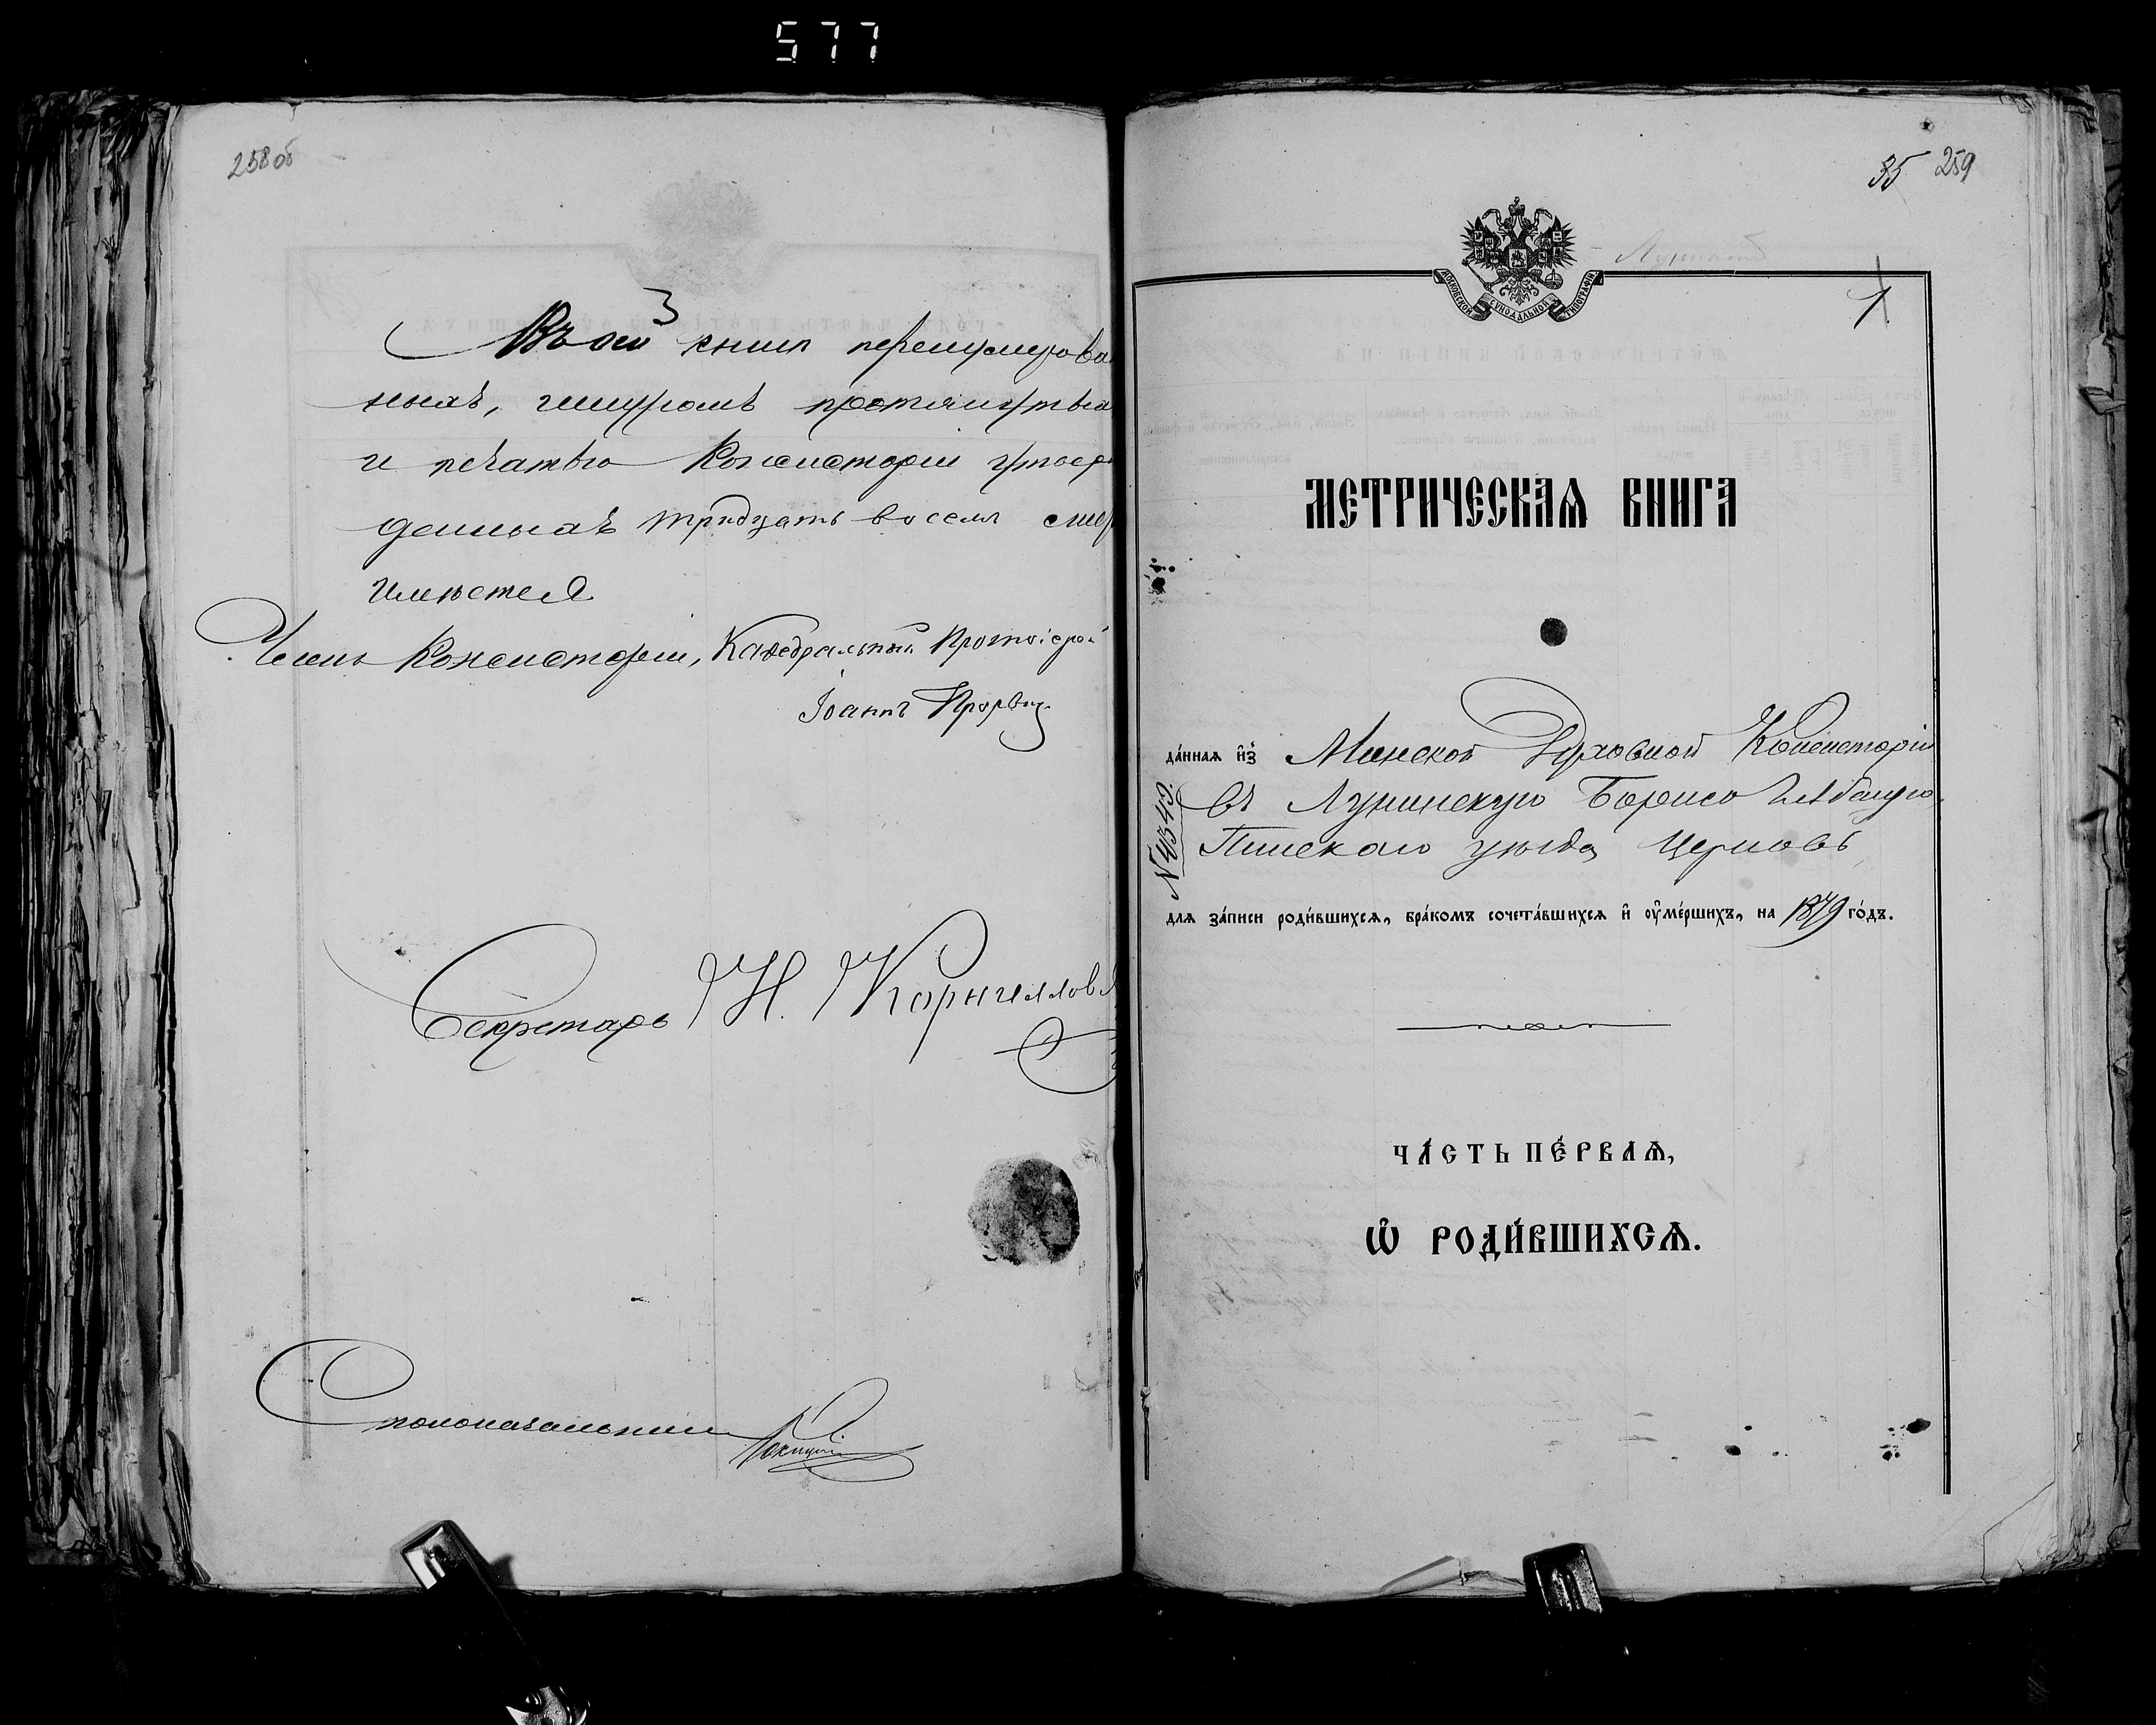 577
258об
Въ сей книге перенумерова
ныхъ, шнуромъ протянутыхъ
и печатью Консисторіи утвер
денныхъ тридцать восемь
имеется
Членъ Консисторіи, Каѳедральный Протоіерей
Іоаннъ
Секретарь Н. Корниллов
Столоначальник
35 259
МОСКОВСКОЙ СѴНОДАЛЬНОЙ ТИПОГРАФІИ
1.
МЕТРИЧЕСКАѦ КНИГА
да́ннаѧ и҆з̾ Минской Духовной Консисторіи
въ Лунинскую Борисо Глѣбскую
Пинскаго уѣзда Церковь
№4549.
длѧ за́писи роди́вшихсѧ, бра́комъ сочета́вшихсѧ и҆ ᲂу҆ме́ршихъ, на 1879 го́дъ.
ЧА́СТЬ ПЕ́РВАѦ,
Ѡ҆ РОДИ́ВШИХСѦ.